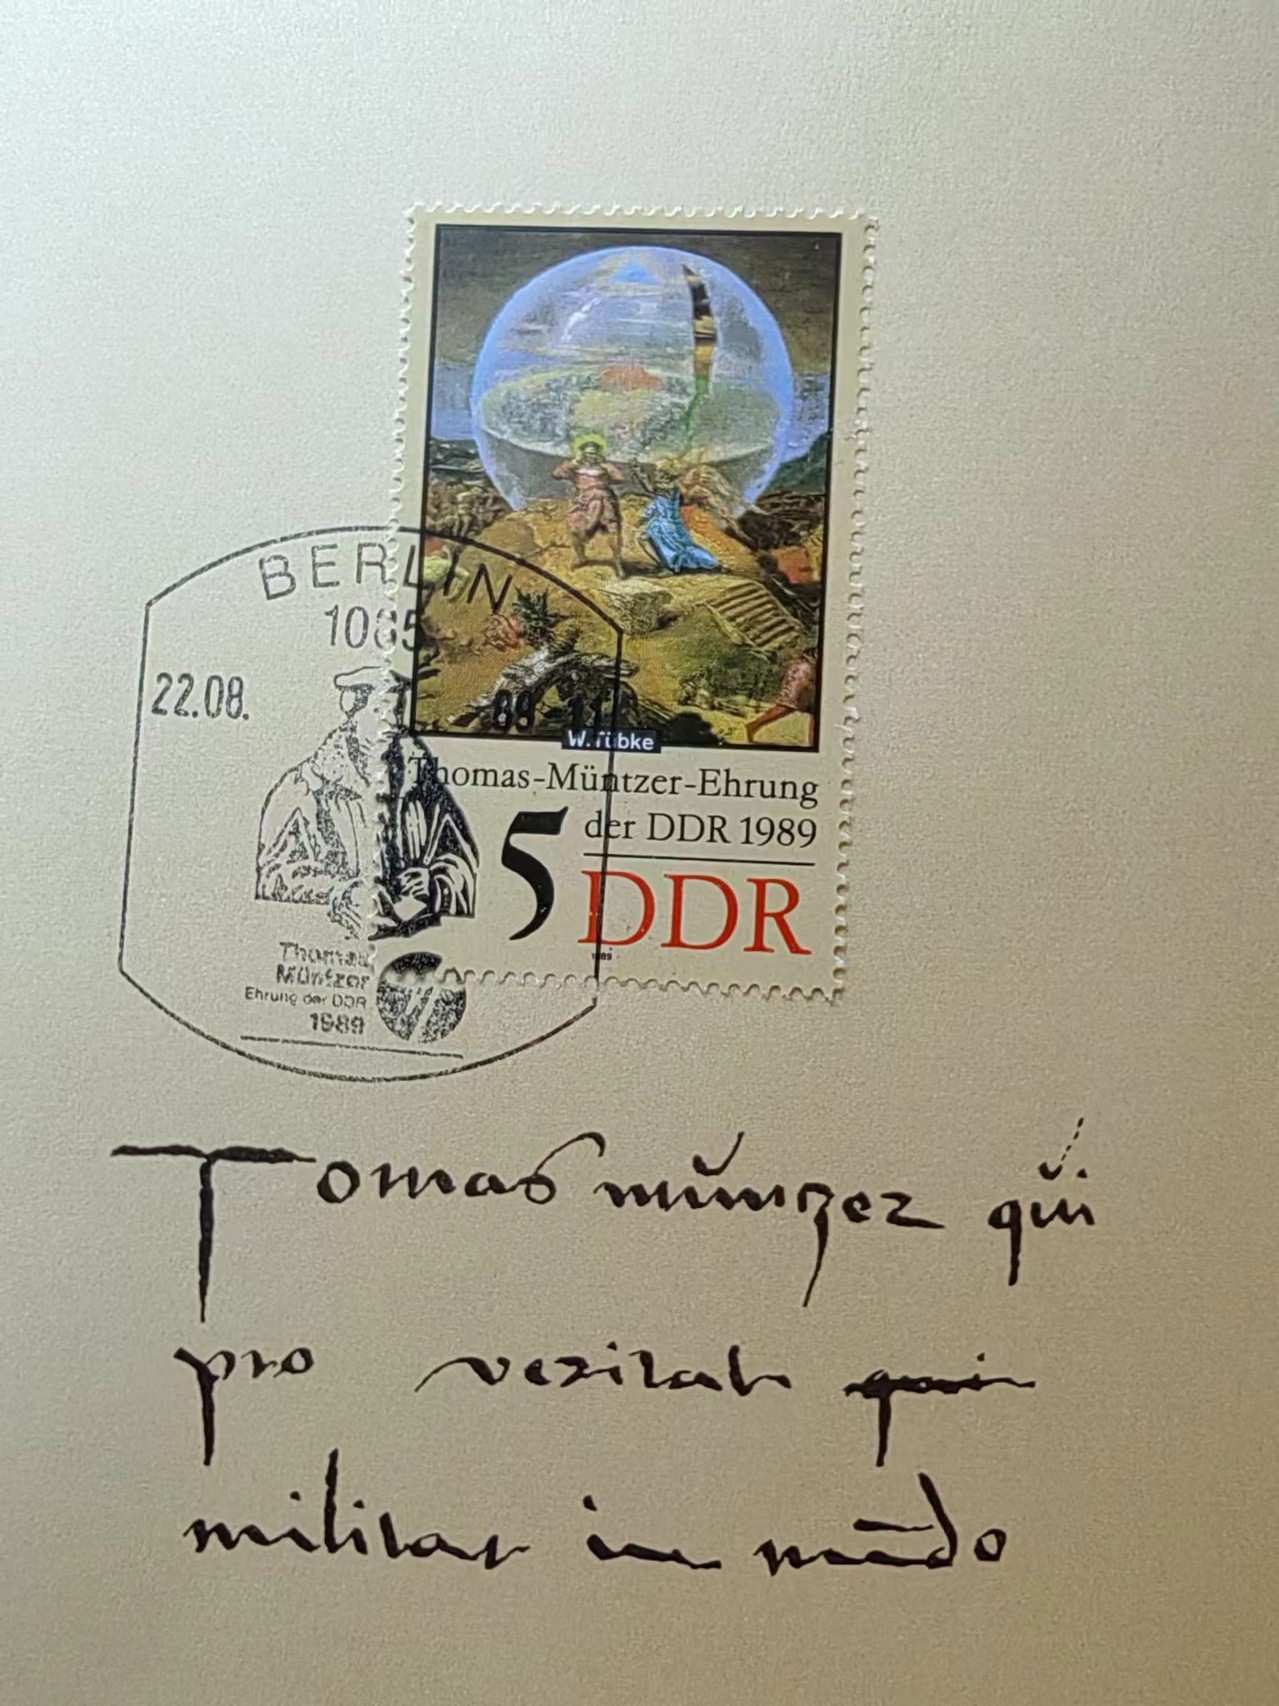 BERLIN
1085
22.08. 89 11
W. Tübke
Thomas-Müntzer-Ehrung
der DDR 1989
5 DDR
1989
Thomas
Müntzer
Ehrung der DDR
1989
Tomas müntzer qui
pro veritate qui
militat in mūdo